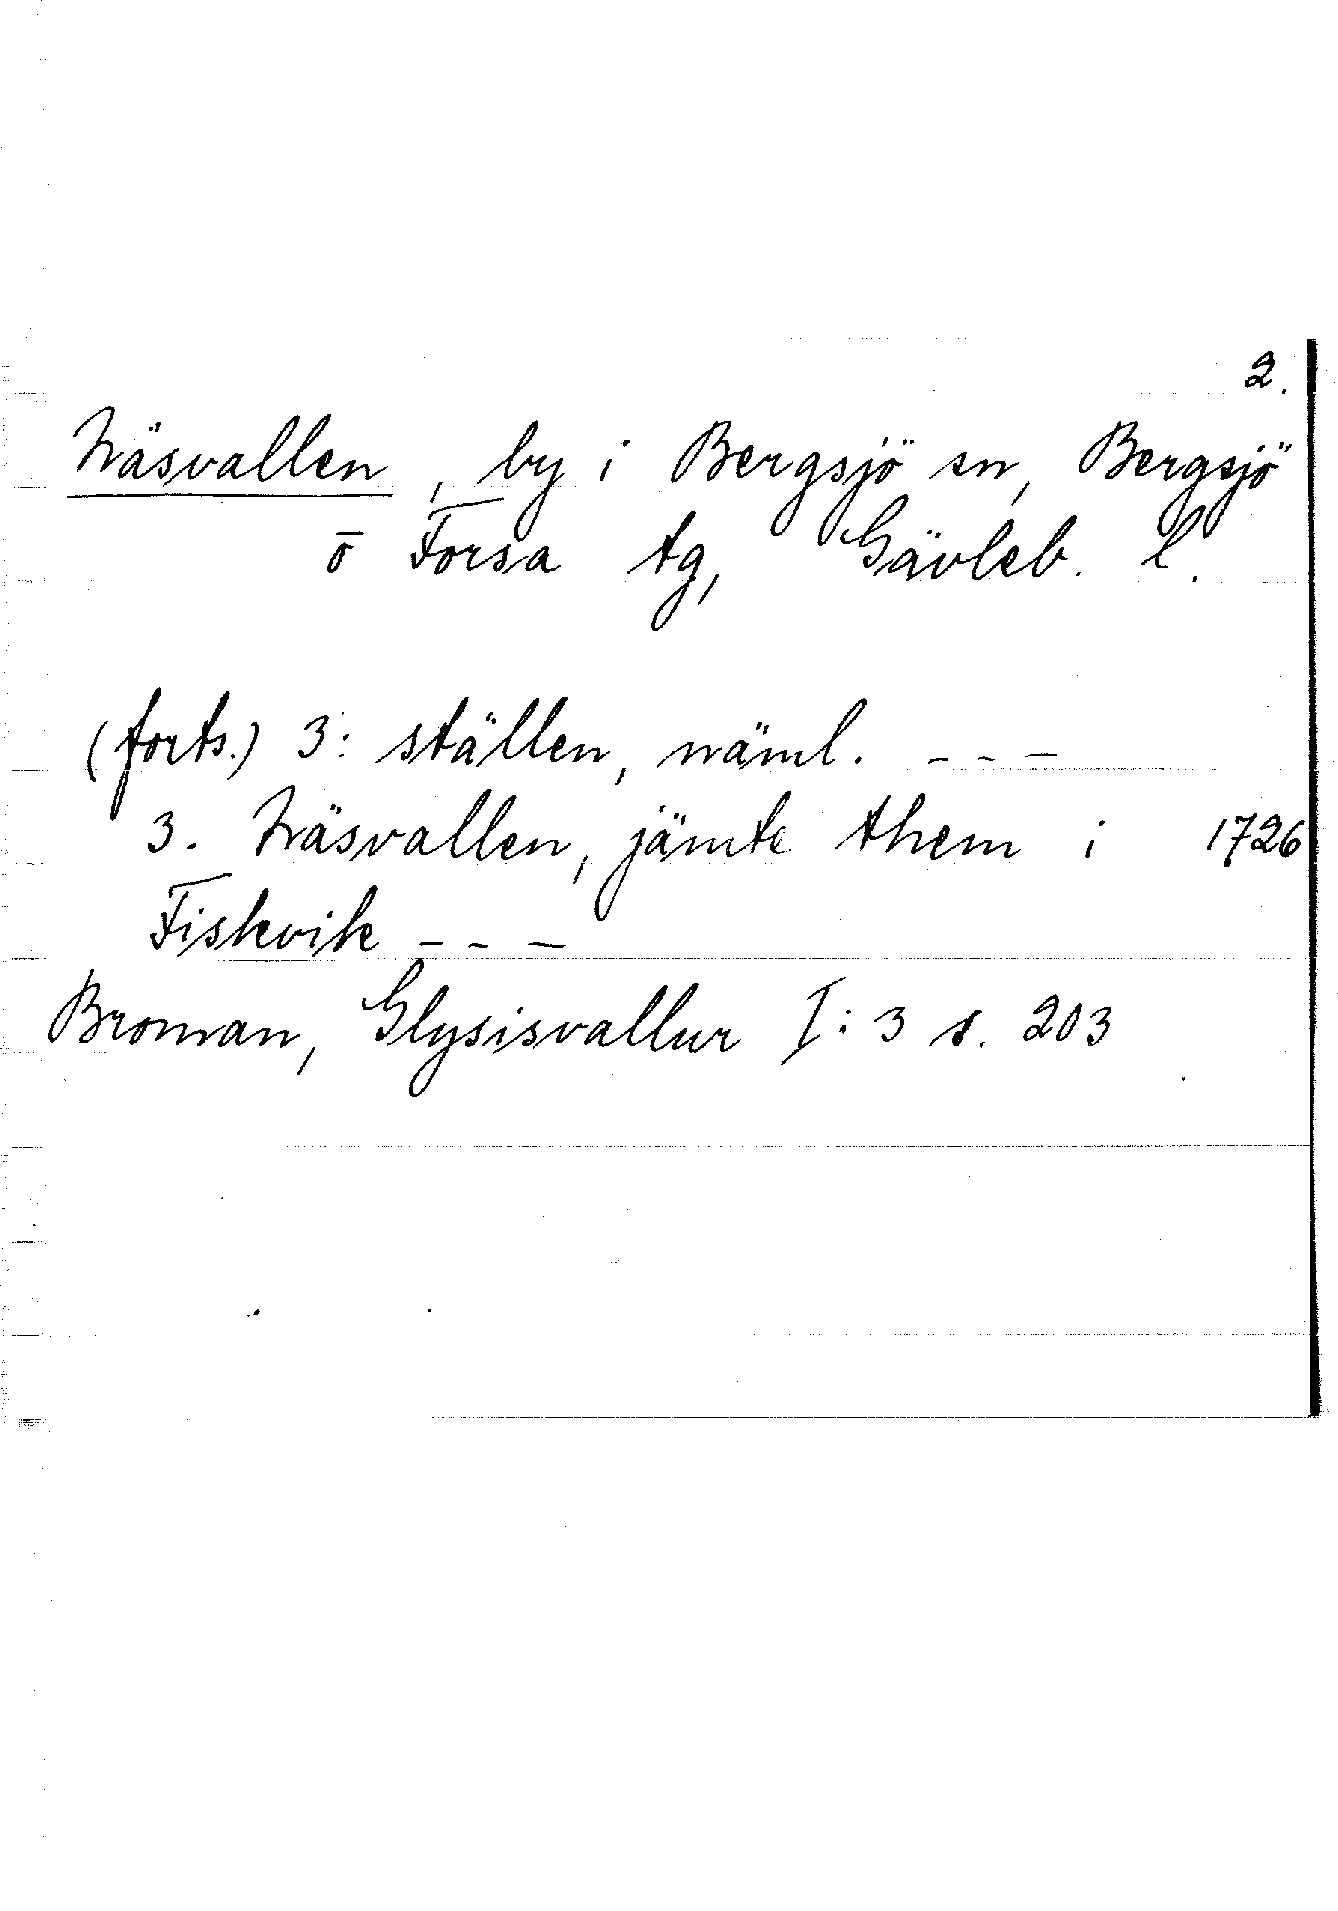 2.
Näsvallen, by i Bergsjö sn, Bergsjö
o̅ Forsa tg, Gävleb. l.
(forts.) 3: ställen, näml. - - -
3. Näsvallen, jämte them i 1726
Fiskvik - - -
Broman, Glysisvallur I: 3 s. 203